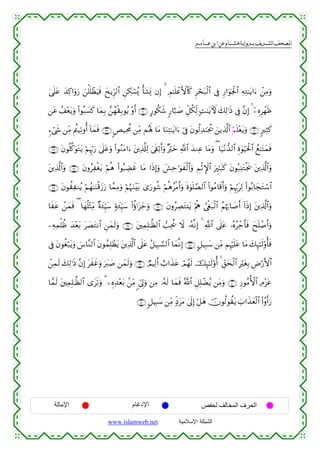 المصحف الشريف برواية هشام عن ابن عامر
وَمِنْ ءَايَٰتِهِ ٱلْجَوَارِ فِي ٱلْبَحْرِ كَٱلْأَعْلَٰمِ إِن يَشَأْ يُسْكِنِ ٱلرِّيحَ فَيَظْلَلْنَ رَوَاكِدَ عَلَىٰ
ظَهْرِهِۦٓ إِنَّ فِي ذَٰلِكَ لَءَايَٰتٍ لِّكُلِّ صَبَّارٍ شَكُورٍ أَوْ يُوبِقْهُنَّ بِمَا كَسَبُوا۟ وَيَعْفُ عَن
كَثِيرٍ وَيَعْلَمُ ٱلَّذِينَ يُجَٰدِلُونَ فِيٓ ءَايَٰتِنَا مَا لَهُم مِّن مَّحِيصٍ فَمَآ أُوتِيتُم مِّن شَيْءٍ
فَمَتَٰعُ ٱلْحَيَوٰةِ ٱلدُّنْيَا وَمَا عِندَ ٱللَّهِ خَيْرٌ وَأَبْقَىٰ لِلَّذِينَ ءَامَنُوا۟ وَعَلَىٰ رَبِّهِمْ يَتَوَكَّلُونَ
وَٱلَّذِينَ يَجْتَنِبُونَ كَبَٰٓئِرَ ٱلْإِثْمِ وَٱلْفَوَٰحِشَ وَإِذَا مَا غَضِبُوا۟ هُمْ يَغْفِرُونَ وَٱلَّذِينَ
ٱسْتَجَابُوا۟ لِرَبِّهِمْ وَأَقَامُوا۟ ٱلصَّلَوٰةَ وَأَمْرُهُمْ شُورَىٰ بَيْنَهُمْ وَمِمَّا رَزَقْنَٰهُمْ يُنفِقُونَ
وَٱلَّذِينَ إِذَآ أَصَابَهُمُ ٱلْبَغْيُ هُمْ يَنتَصِرُونَ وَجَزَٰٓؤُا۟ سَيِّئَةٍ سَيِّئَةٌ مِّثْلُهَا فَمَنْ عَفَا
وَأَصْلَحَ فَأَجْرُهُۥ عَلَى ٱللَّهِ إِنَّهُۥ لَا يُحِبُّ ٱلظَّٰلِمِينَ وَلَمَنِ ٱنتَصَرَ بَعْدَ ظُلْمِهِۦ
فَأُو۟لَٰٓئِكَ مَا عَلَيْهِم مِّن سَبِيلٍ إِنَّمَا ٱلسَّبِيلُ عَلَى ٱلَّذِينَ يَظْلِمُونَ ٱلنَّاسَ وَيَبْغُونَ فِي
ٱلْأَرْضِ بِغَيْرِ ٱلْحَقِّ أُو۟لَٰٓئِكَ لَهُمْ عَذَابٌ أَلِيمٌ وَلَمَن صَبَرَ وَغَفَرَ إِنَّ ذَٰلِكَ لَمِنْ
عَزْمِ ٱلْأُمُورِ وَمَن يُضْلِلِ ٱللَّهُ فَمَا لَهُۥ مِن وَلِيٍّ مِّنۢ بَعْدِهِۦ وَتَرَى ٱلظَّٰلِمِينَ لَمَّا
رَأَوُا۟ ٱلْعَذَابَ يَقُولُونَ هَلْ إِلَىٰ مَرَدٍّ مِّن سَبِيلٍ
الحرف المخالف لحفص الإدغام الإمالة
الشبكة الإسلامية www.islamweb.net